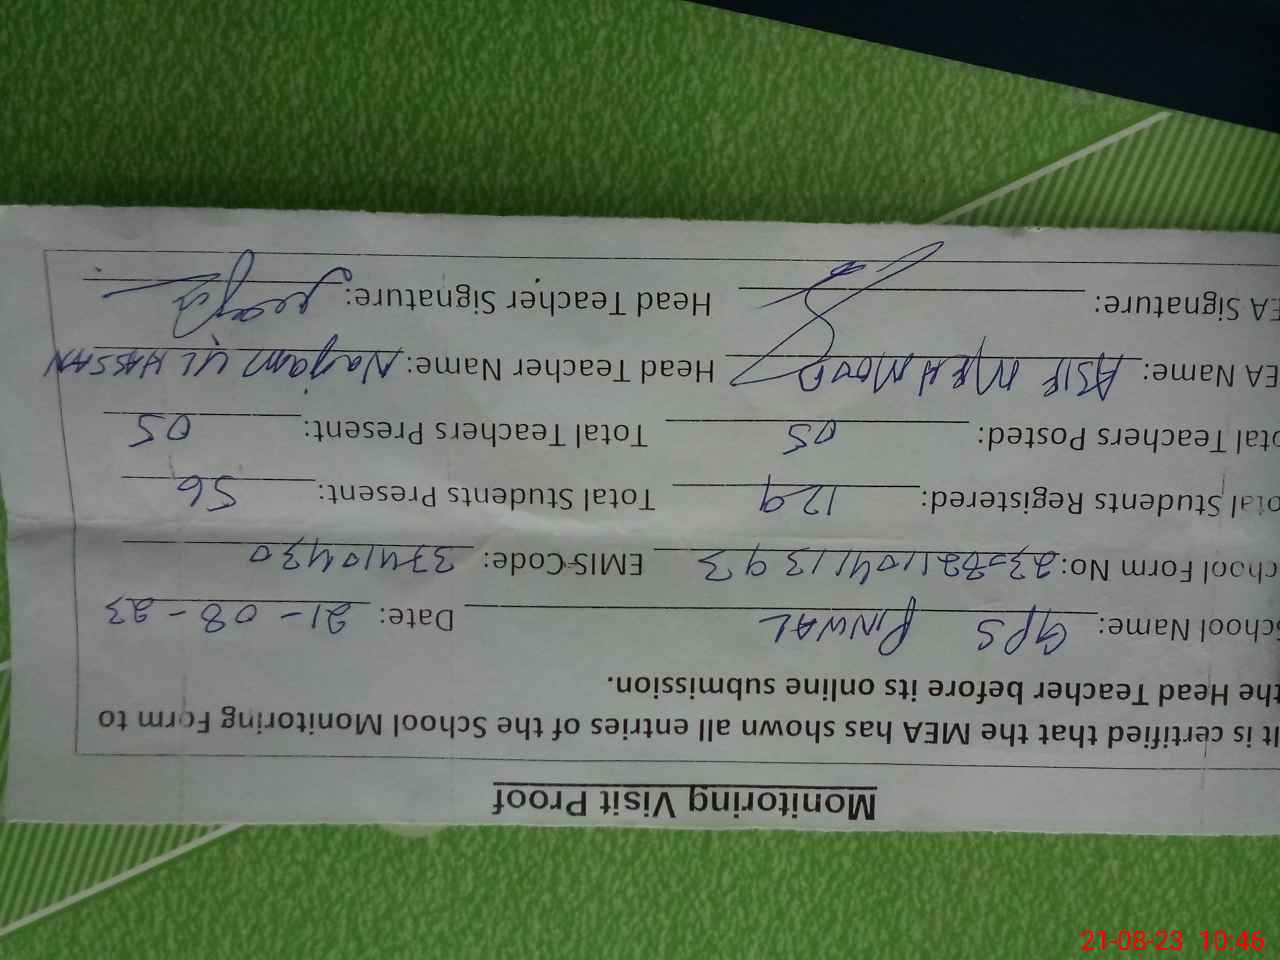 Monitoring Visit Proof
It is certified that the MEA has shown all entries of the School Monitoring Form to
the Head Teacher before its online submission.
School Name: GPS PINWAL Date: 21-08-23
chool Form No: EMIS-Code: 37410430
otal Students Registered: 129 Total Students Present: 56
otal Teachers Posted: 05 Total Teachers Present: 05
EA Name: ASIF MEHMOOD Head Teacher Name: Najam UL HASSAN
EA Signature: Head Teacher Signature:
21-08-23 10:46